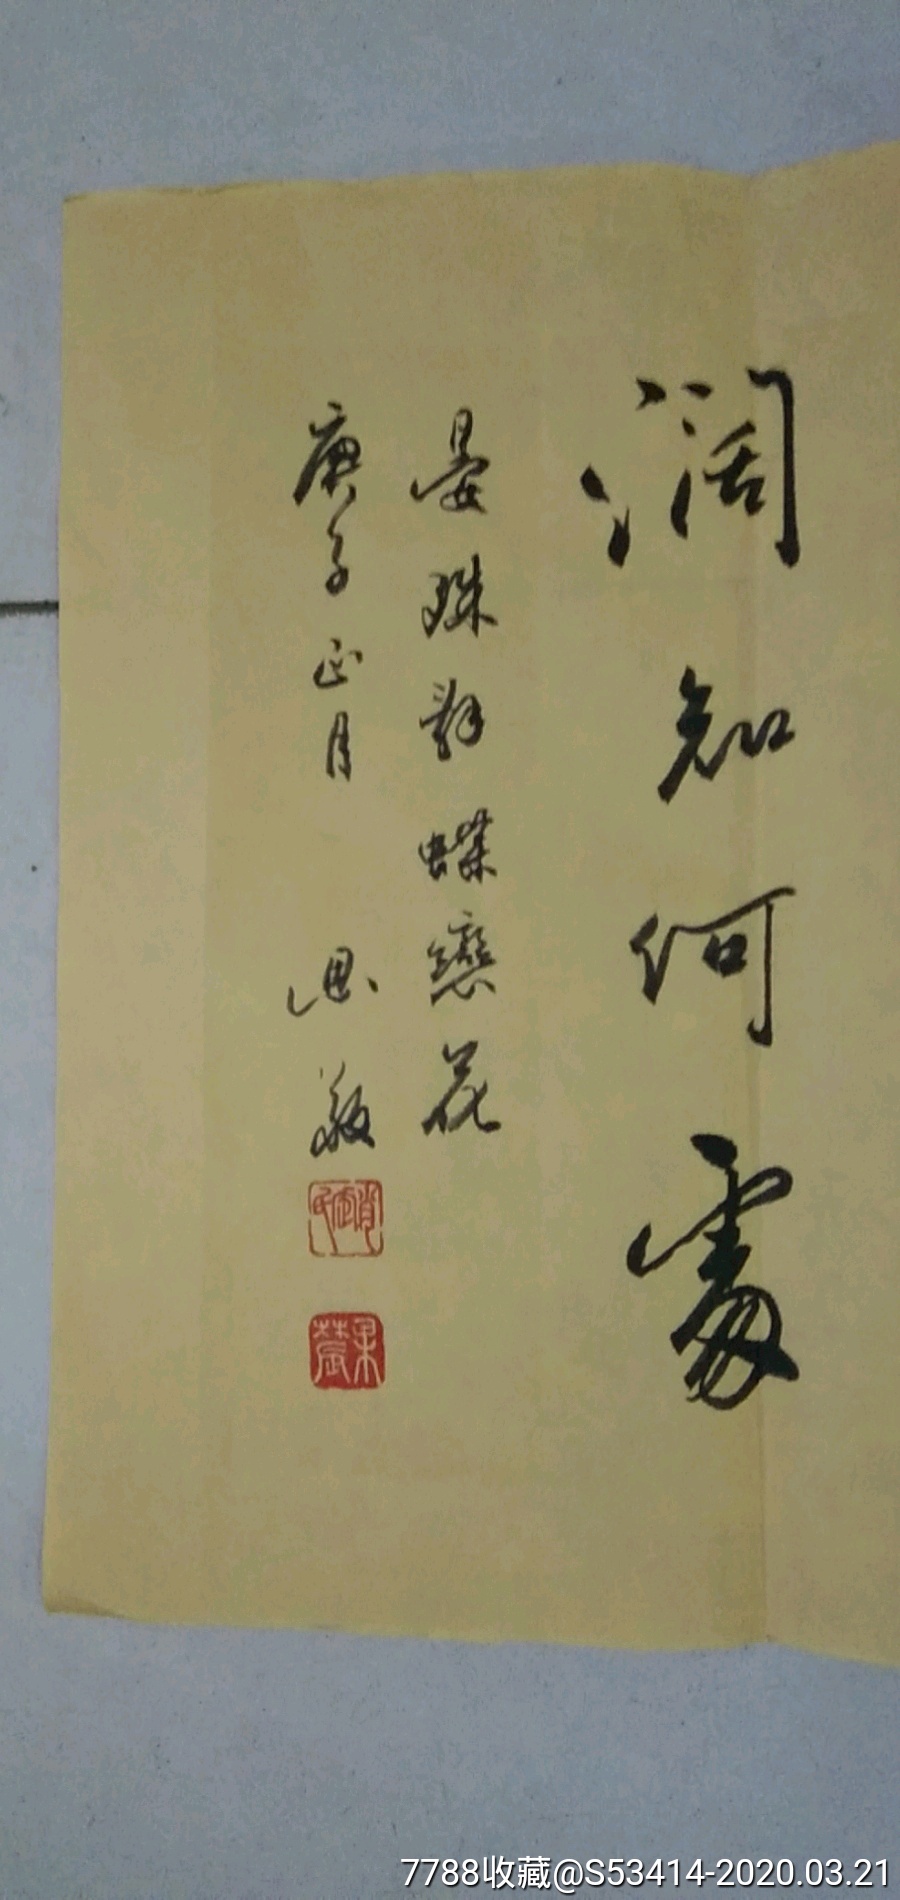 濶知何處
晏殊 蝶戀花
庚子正月 思敬
7788收藏@S53414-2020.03.21